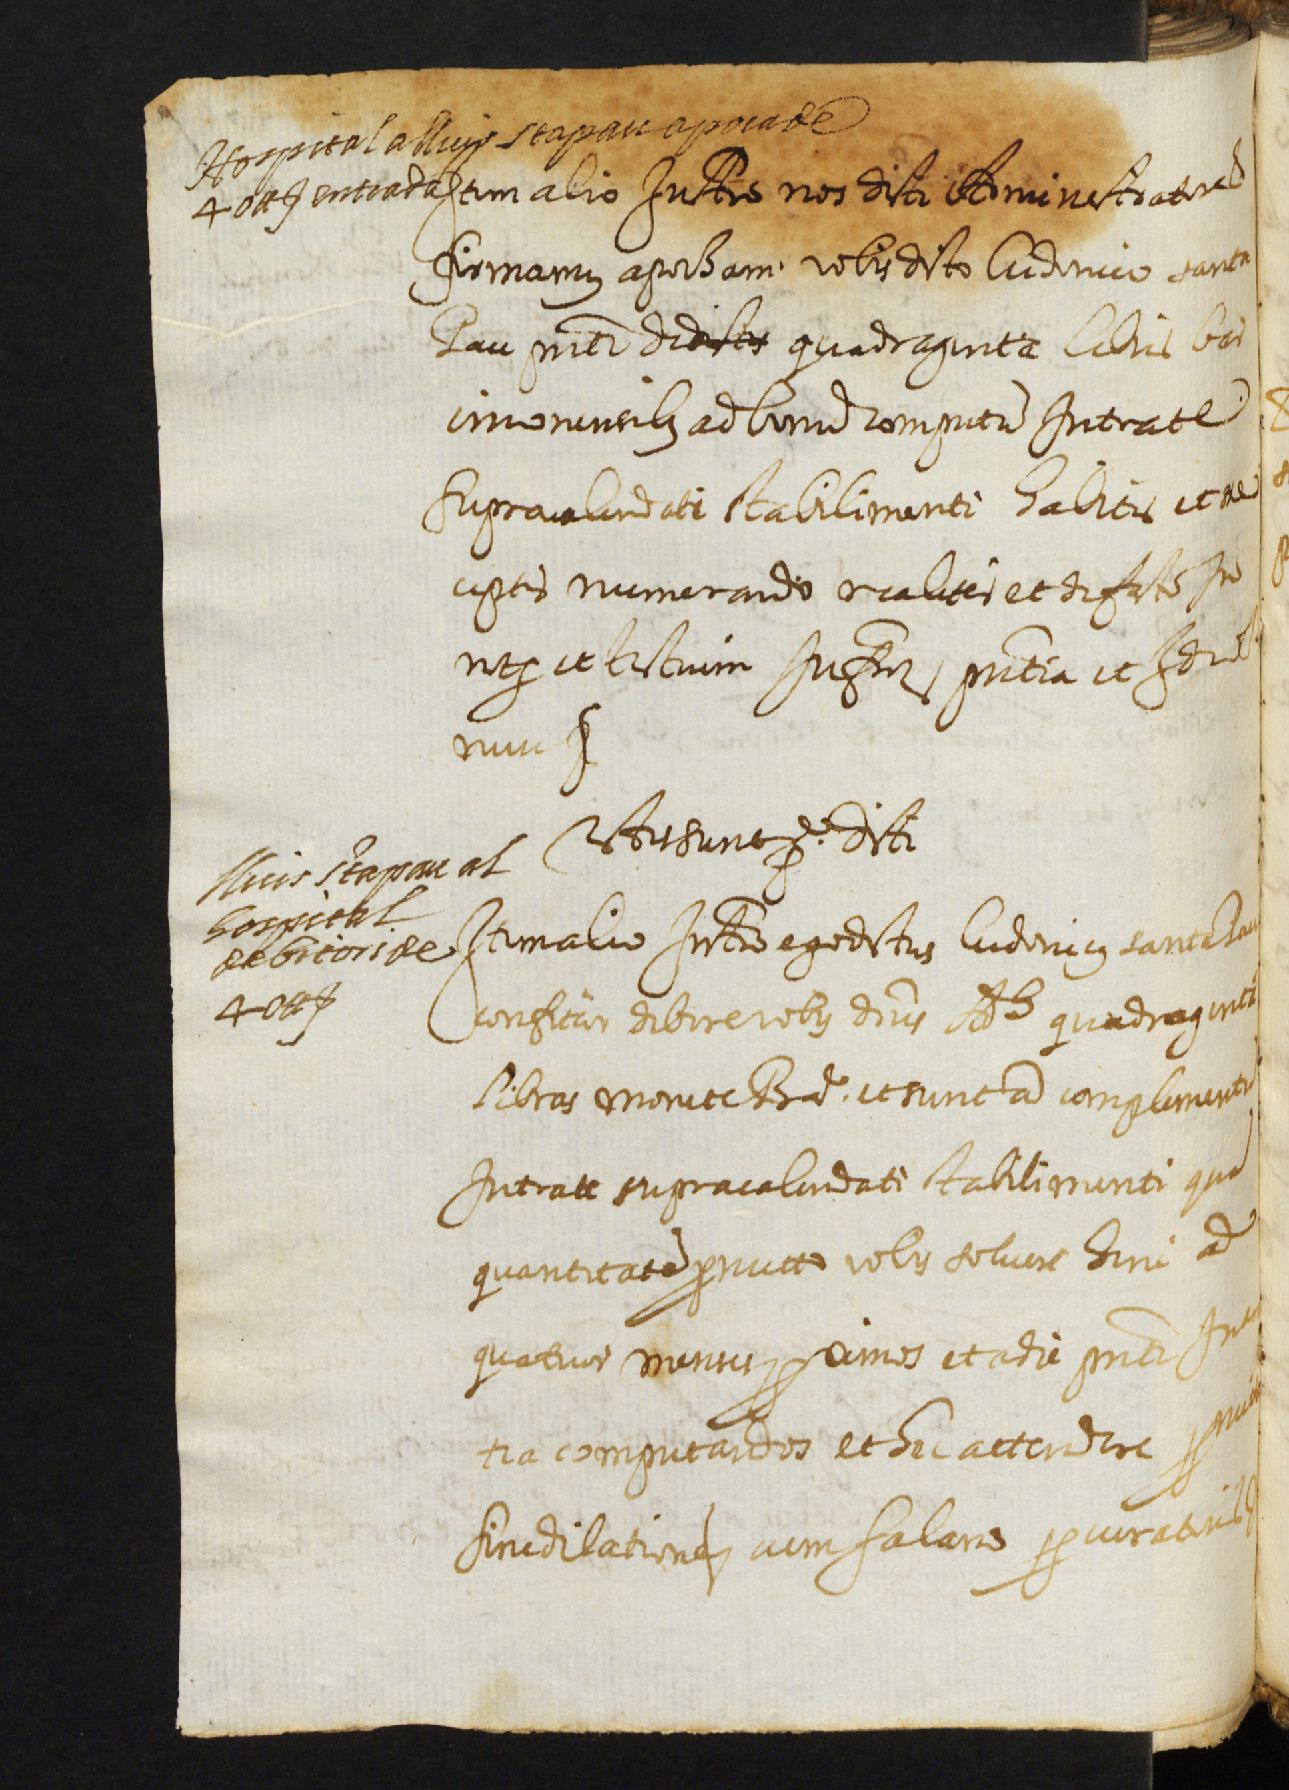 Hospital a lluis stapau apocade
40 ll entrada
Item alio Instro nos dicti Administratores
firmamus apocham vobis dicto ludovico santa
Pau pnti quadraginta libris bar
cinonensibus ad bonum computum Intrate
supracalendati stabilimenti habitis et re
ceptis numerando realiter et de facto In
notj et testium Infrorum pntia et
num
Testes sunt pe. dicti
lluis stapau al
hospital
debitori de
40 ll
Item alio Instro ego dictus ludovicus santa Pau
confiteor debere vobis dnis Ad quadraginta
libras monete Bar. et sunt ad complementum
Intrate supracalendati stabilimenti quam
quantitatem promitto vobis solvere hinc ad
quatuor menses proximos et a die pnti In an
tea computandos et hec attendere promitto
sine dilatione cum salario procuratoribus